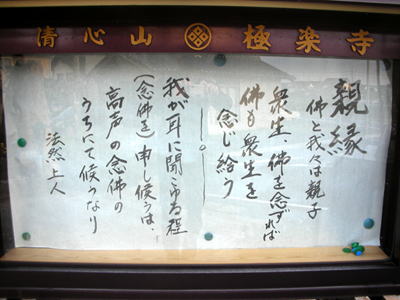 清心山 極楽寺
親縁
佛と我々は親子
衆生、佛を念ずれば
佛も衆生を
念じ給う
我が耳に聞こゆる程
(念佛を)申し候うは、
高声の念佛の
うちにて候うなり
法然上人